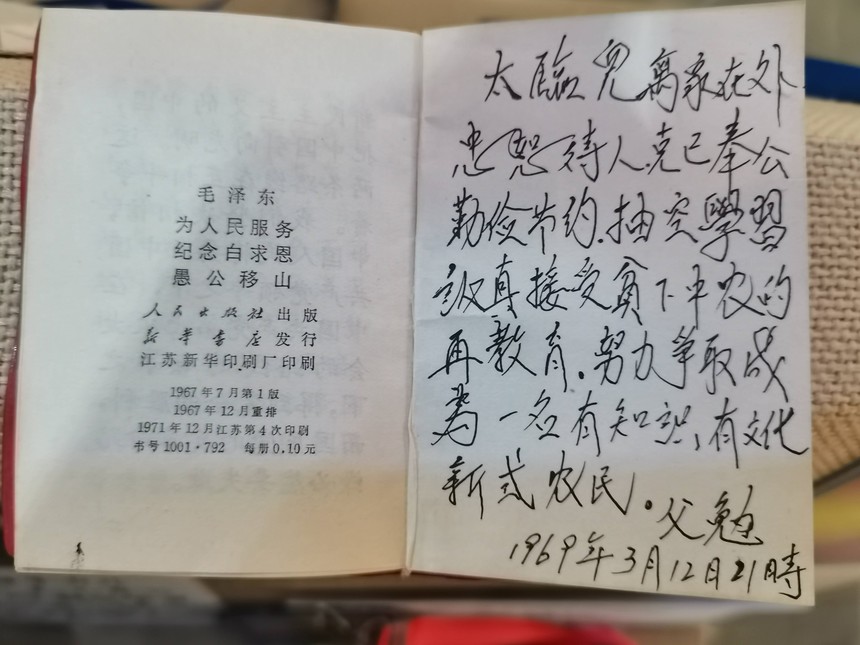 毛泽东
为人民服务
纪念白求恩
愚公移山
人民出版社 出版
新华书店 发行
江苏新华印刷厂印刷
1967年7月第1版
1967年12月重排
1971年12月江苏第4次印刷
书号1001·792 每册0.10元
太臨兒离家在外
忠恕待人克己奉公
勤俭节约.抽空學習
認真接受貧下中农的
再教育.努力争取成
為一名有知识,有文化
新式农民。
父勉
1969年3月12日21時